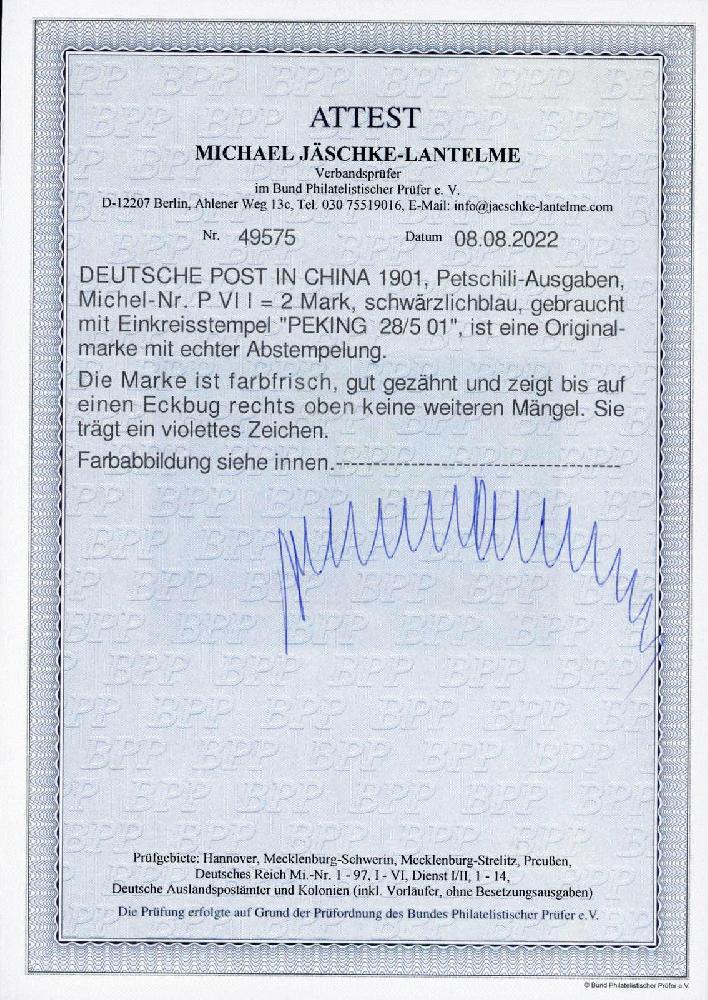 ATTEST
MICHAEL JÄSCHKE-LANTELME
Verbandsprüfer
im Bund Philatelistischer Prüfer e. V.
D-12207 Berlin, Ahlener Weg 13c, Tel. 030 75519016, E-Mail: info@jaeschke-lantelme.com
Nr. 49575 Datum 08.08.2022
DEUTSCHE POST IN CHINA 1901, Petschili-Ausgaben,
Michel-Nr. P VI I = 2 Mark, schwärzlichblau, gebraucht
mit Einkreisstempel "PEKING 28/5 01", ist eine Original-
marke mit echter Abstempelung.
Die Marke ist farbfrisch, gut gezähnt und zeigt bis auf
einen Eckbug rechts oben keine weiteren Mängel. Sie
trägt ein violettes Zeichen.
Farbabbildung siehe innen.------------------------------------
Prüfgebiete: Hannover, Mecklenburg-Schwerin, Mecklenburg-Strelitz, Preußen,
Deutsches Reich Mi.-Nr. 1 - 97, I - VI, Dienst I/II, 1 - 14,
Deutsche Auslandspostämter und Kolonien (inkl. Vorläufer, ohne Besetzungsausgaben)
Die Prüfung erfolgte auf Grund der Prüfordnung des Bundes Philatelistischer Prüfer e.V.
© Bund Philatelistischer Prüfer e.V.